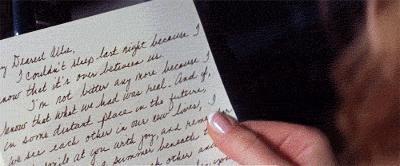 y Dearest Allie,
I couldn't sleep last night because I
now that it's over between us.
I'm not bitter any more because I
know that what we had was real. And if,
in some distant place in the future,
we see each other in our new lives, I
smile at you with joy and remem
a summer beneath t
each other and